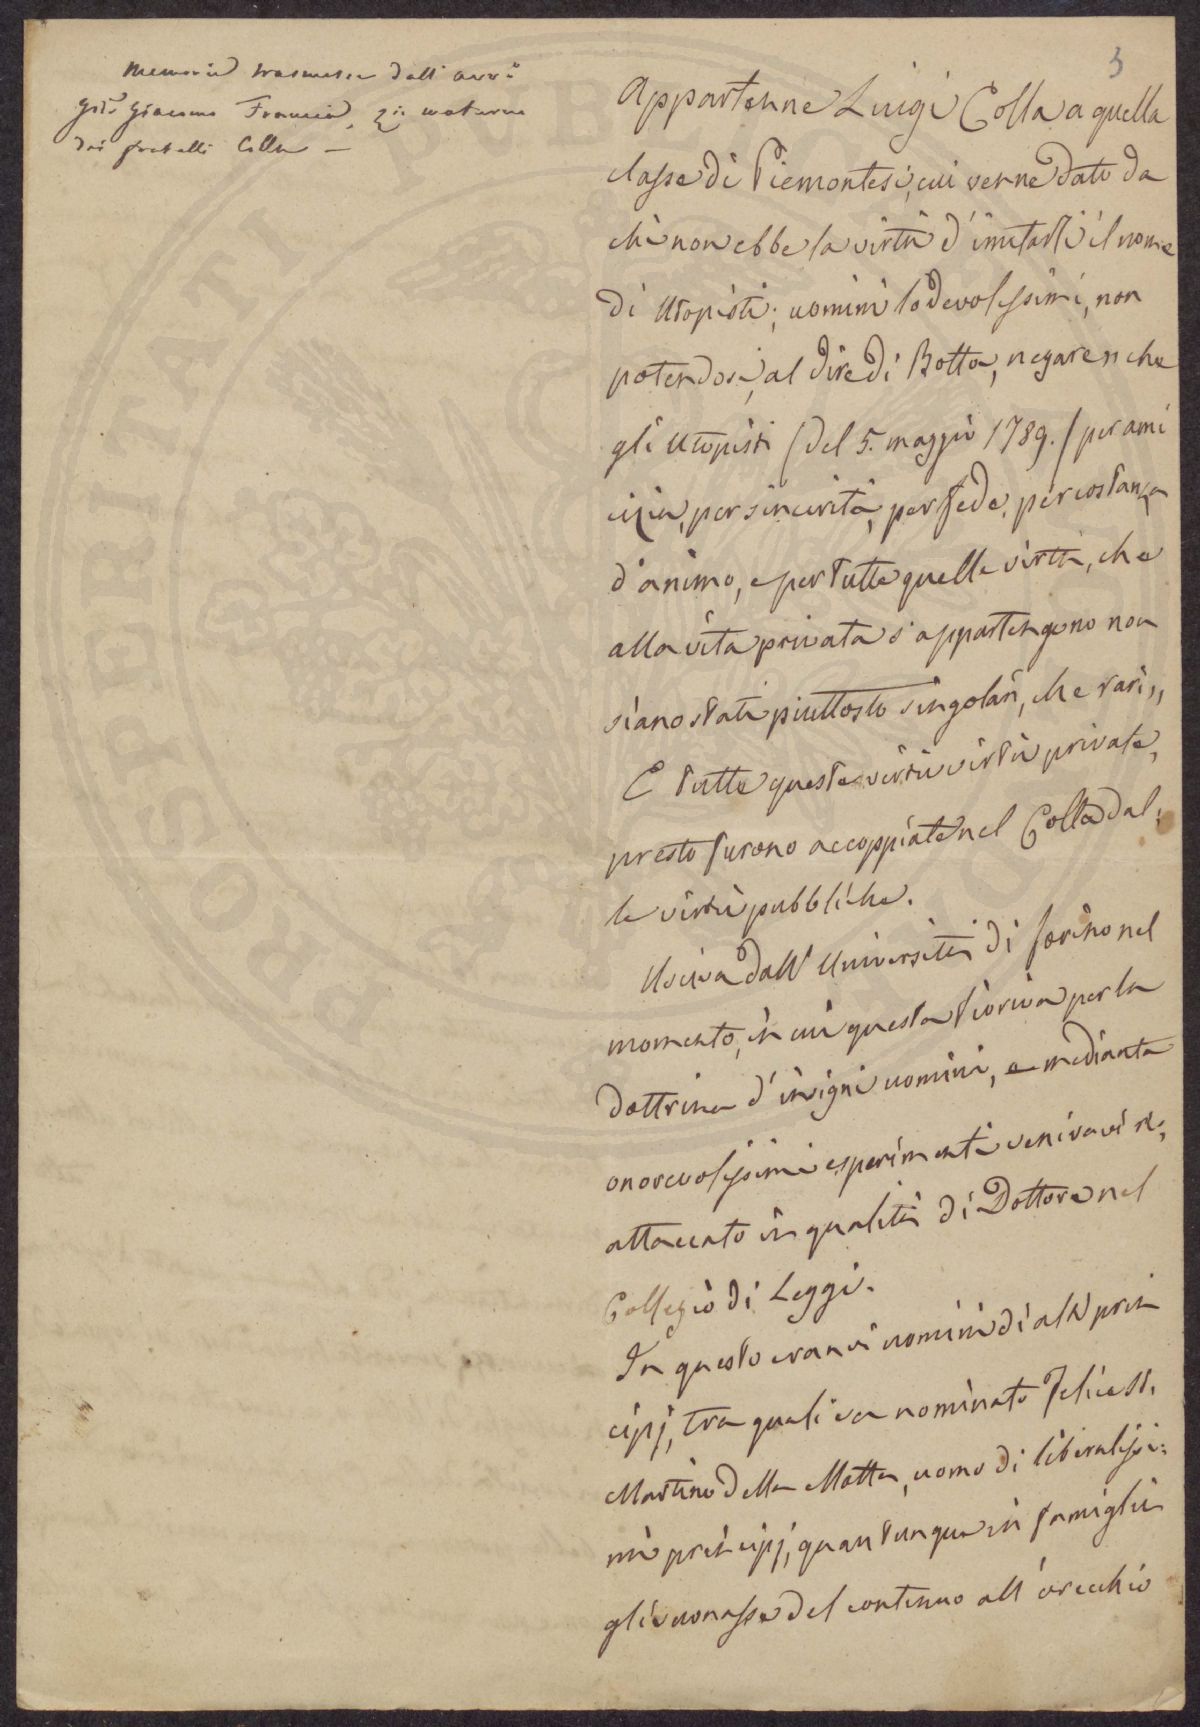 3
Memoria trasmessa dall'avv.
Giacomo Francia, zio materno
dei fratelli Colla —
Appartenne Luigi Colla a quella
classe di Piemontesi, cui venne dato da
chi non ebbe la virtù d'imitarli il nome
di Utopisti; uomini lodevolissimi, non
potendosi, al dire di Botta, negare „ che
gli Utopisti (del 5. maggio 1789.) per ami
cizia, per sincerità, per fede, per costanza
d'animo, e per tutte quelle virtù, che
alla vita privata s'appartengono non
siano stati piuttosto singolari, che rari „
E tutte queste virtù virtù private,
presto furono accoppiate nel Colla dal=
le virtù pubbliche.
Usciva dall'Università di Torino nel
momento, in cui questa fioriva per la
dottrina d'insigni uomini, e mediante
onorevolissimi esperimenti venivavi ri=
attaccato in qualità di Dottore nel
Collegio di Leggi.
In questo eranvi uomini di alti prin
cipj, tra quali va nominato Felice St.
Martino della Motta, uomo di liberalissi=
mi principj, quantunque in famiglia
gli suonasse del continuo all'orecchio
PROSPERITATI PUBLI